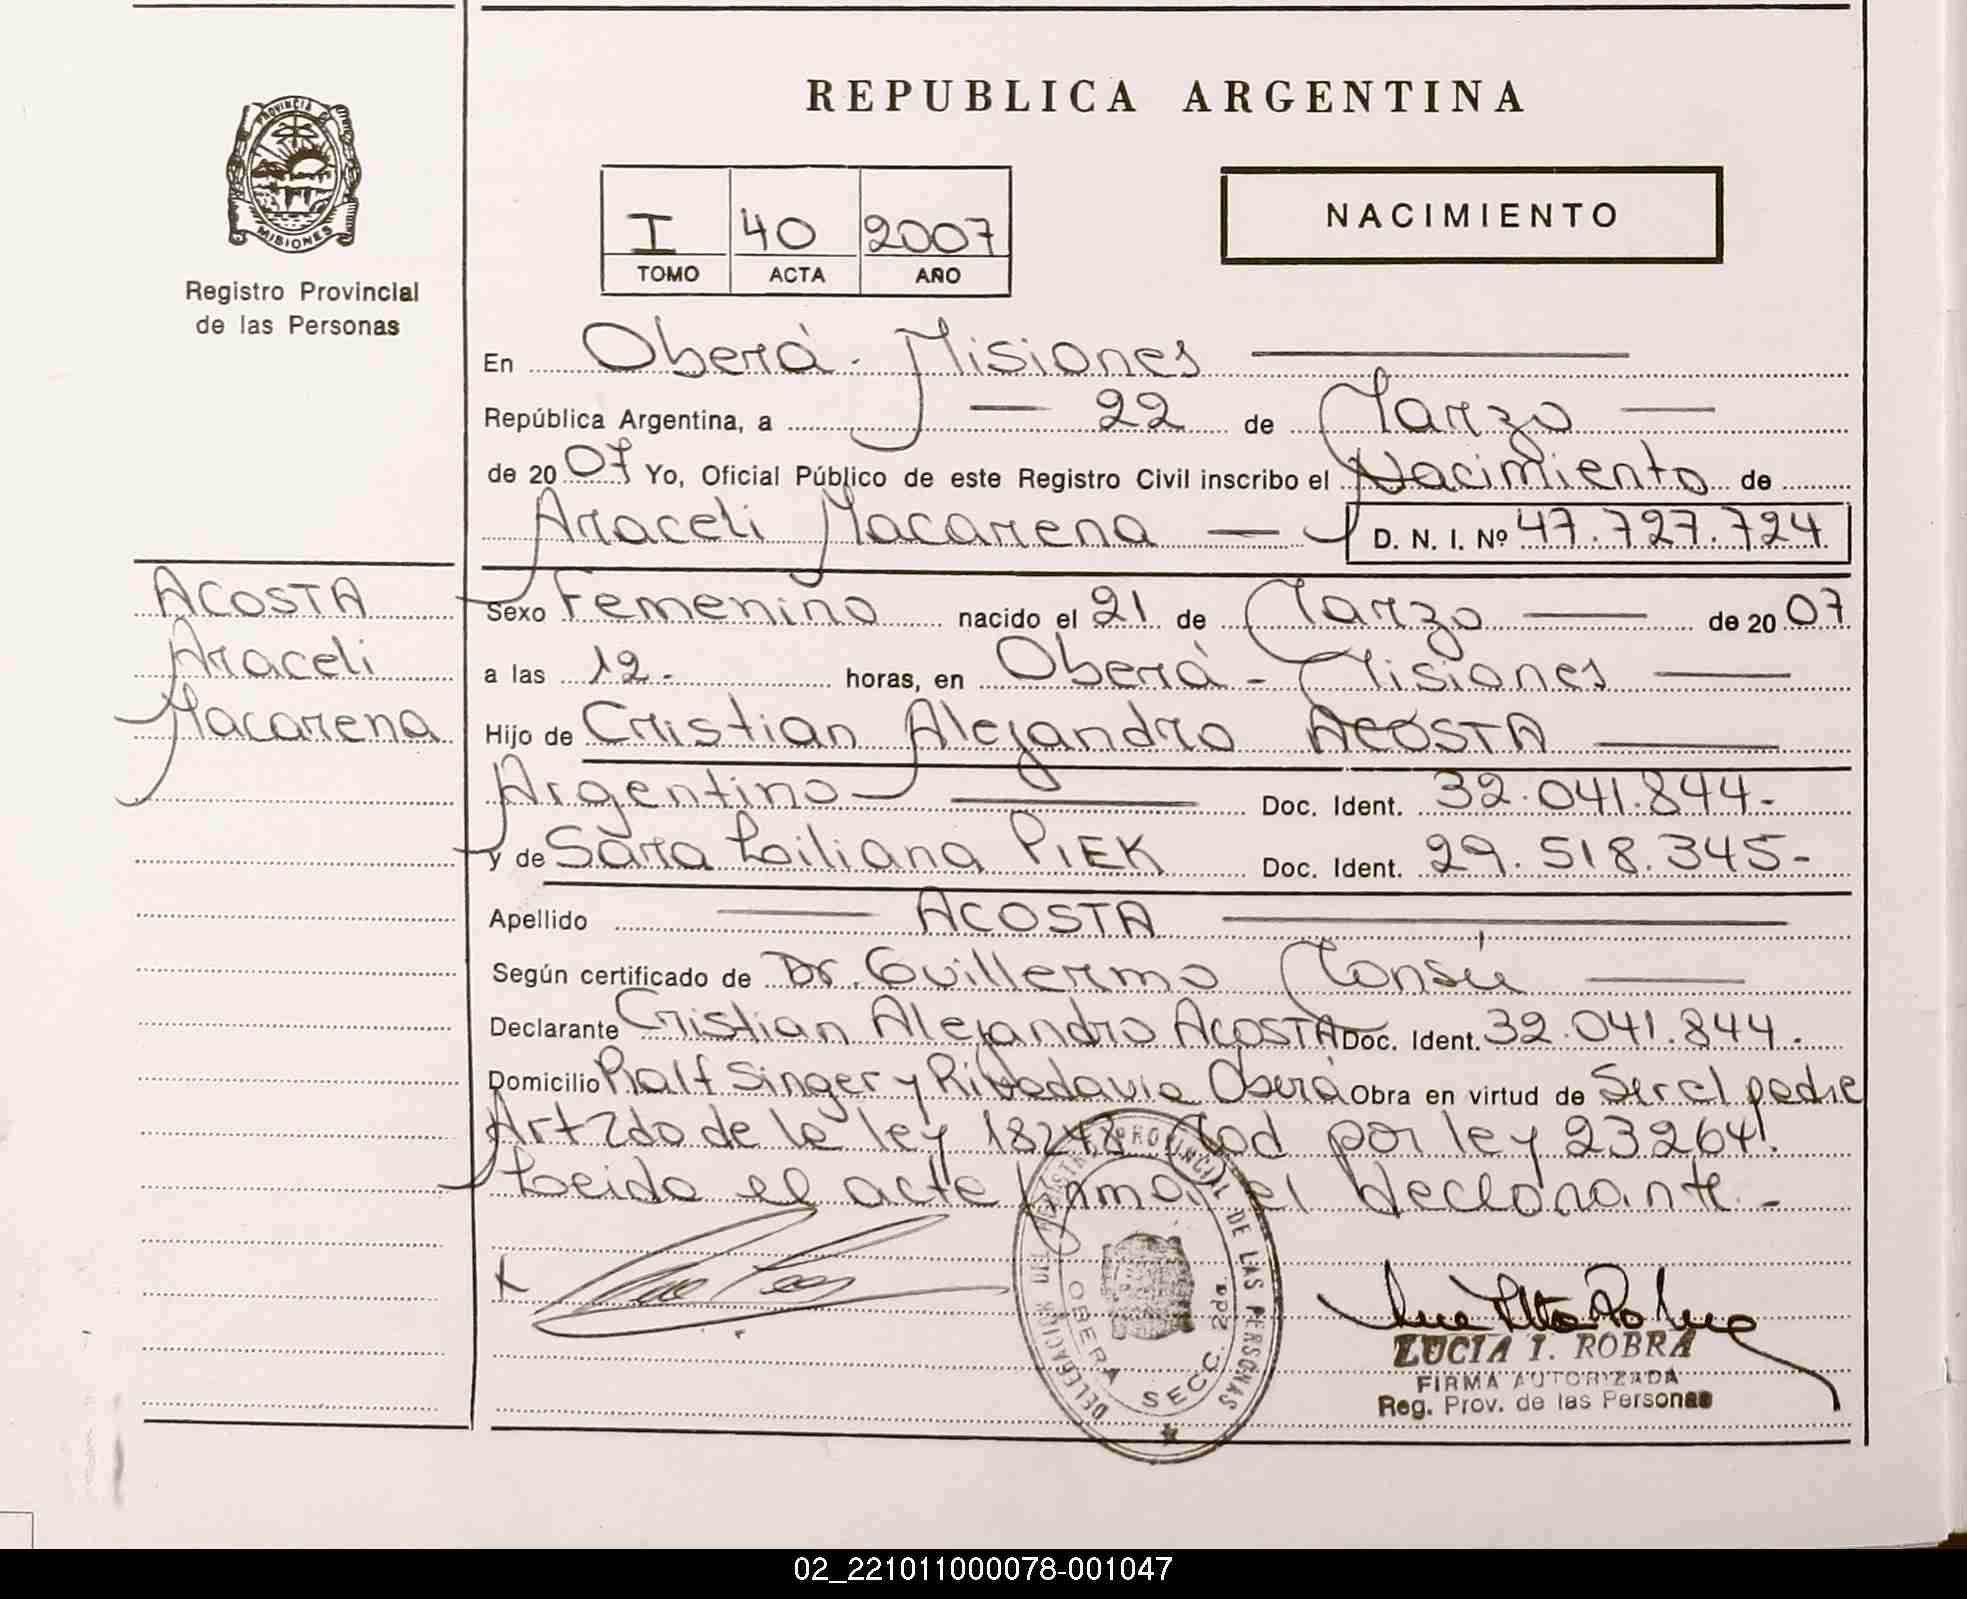 REPUBLICA ARGENTINA
PROVINCIA DE
MISIONES
Registro Provincial
de las Personas
I 40 2007
TOMO ACTA AÑO
NACIMIENTO
En Oberá - Misiones
República Argentina, a 22 de Marzo
de 2007 Yo, Oficial Público de este Registro Civil inscribo el Nacimiento de
Araceli Macarena D. N. I. Nº 47.727.724
ACOSTA
Araceli
Macarena
Sexo Femenino nacido el 21 de Marzo de 2007
a las 12. horas, en Oberá - Misiones
Hijo de Cristian Alejandro ACOSTA
Argentino Doc. Ident. 32.041.844.-
y de Sara Liliana PIEK Doc. Ident. 29.518.345-
Apellido ACOSTA
Según certificado de Dr. Guillermo
Declarante Cristian Alejandro ACOSTA Doc. Ident. 32.041.844.
Domicilio Ralf Singer y Rivadavia Oberá Obra en virtud de Ser el padre
Art 2do de la ley 18248 Mod por ley 23264.
Leida el acta firma el declarante.-
DELEGACION DEL REGISTRO PROVINCIAL DE LAS PERSONAS
OBERA SECC. 2da.
LUCIA I. ROBRA
FIRMA AUTORIZADA
Reg. Prov. de las Personas
02_221011000078-001047